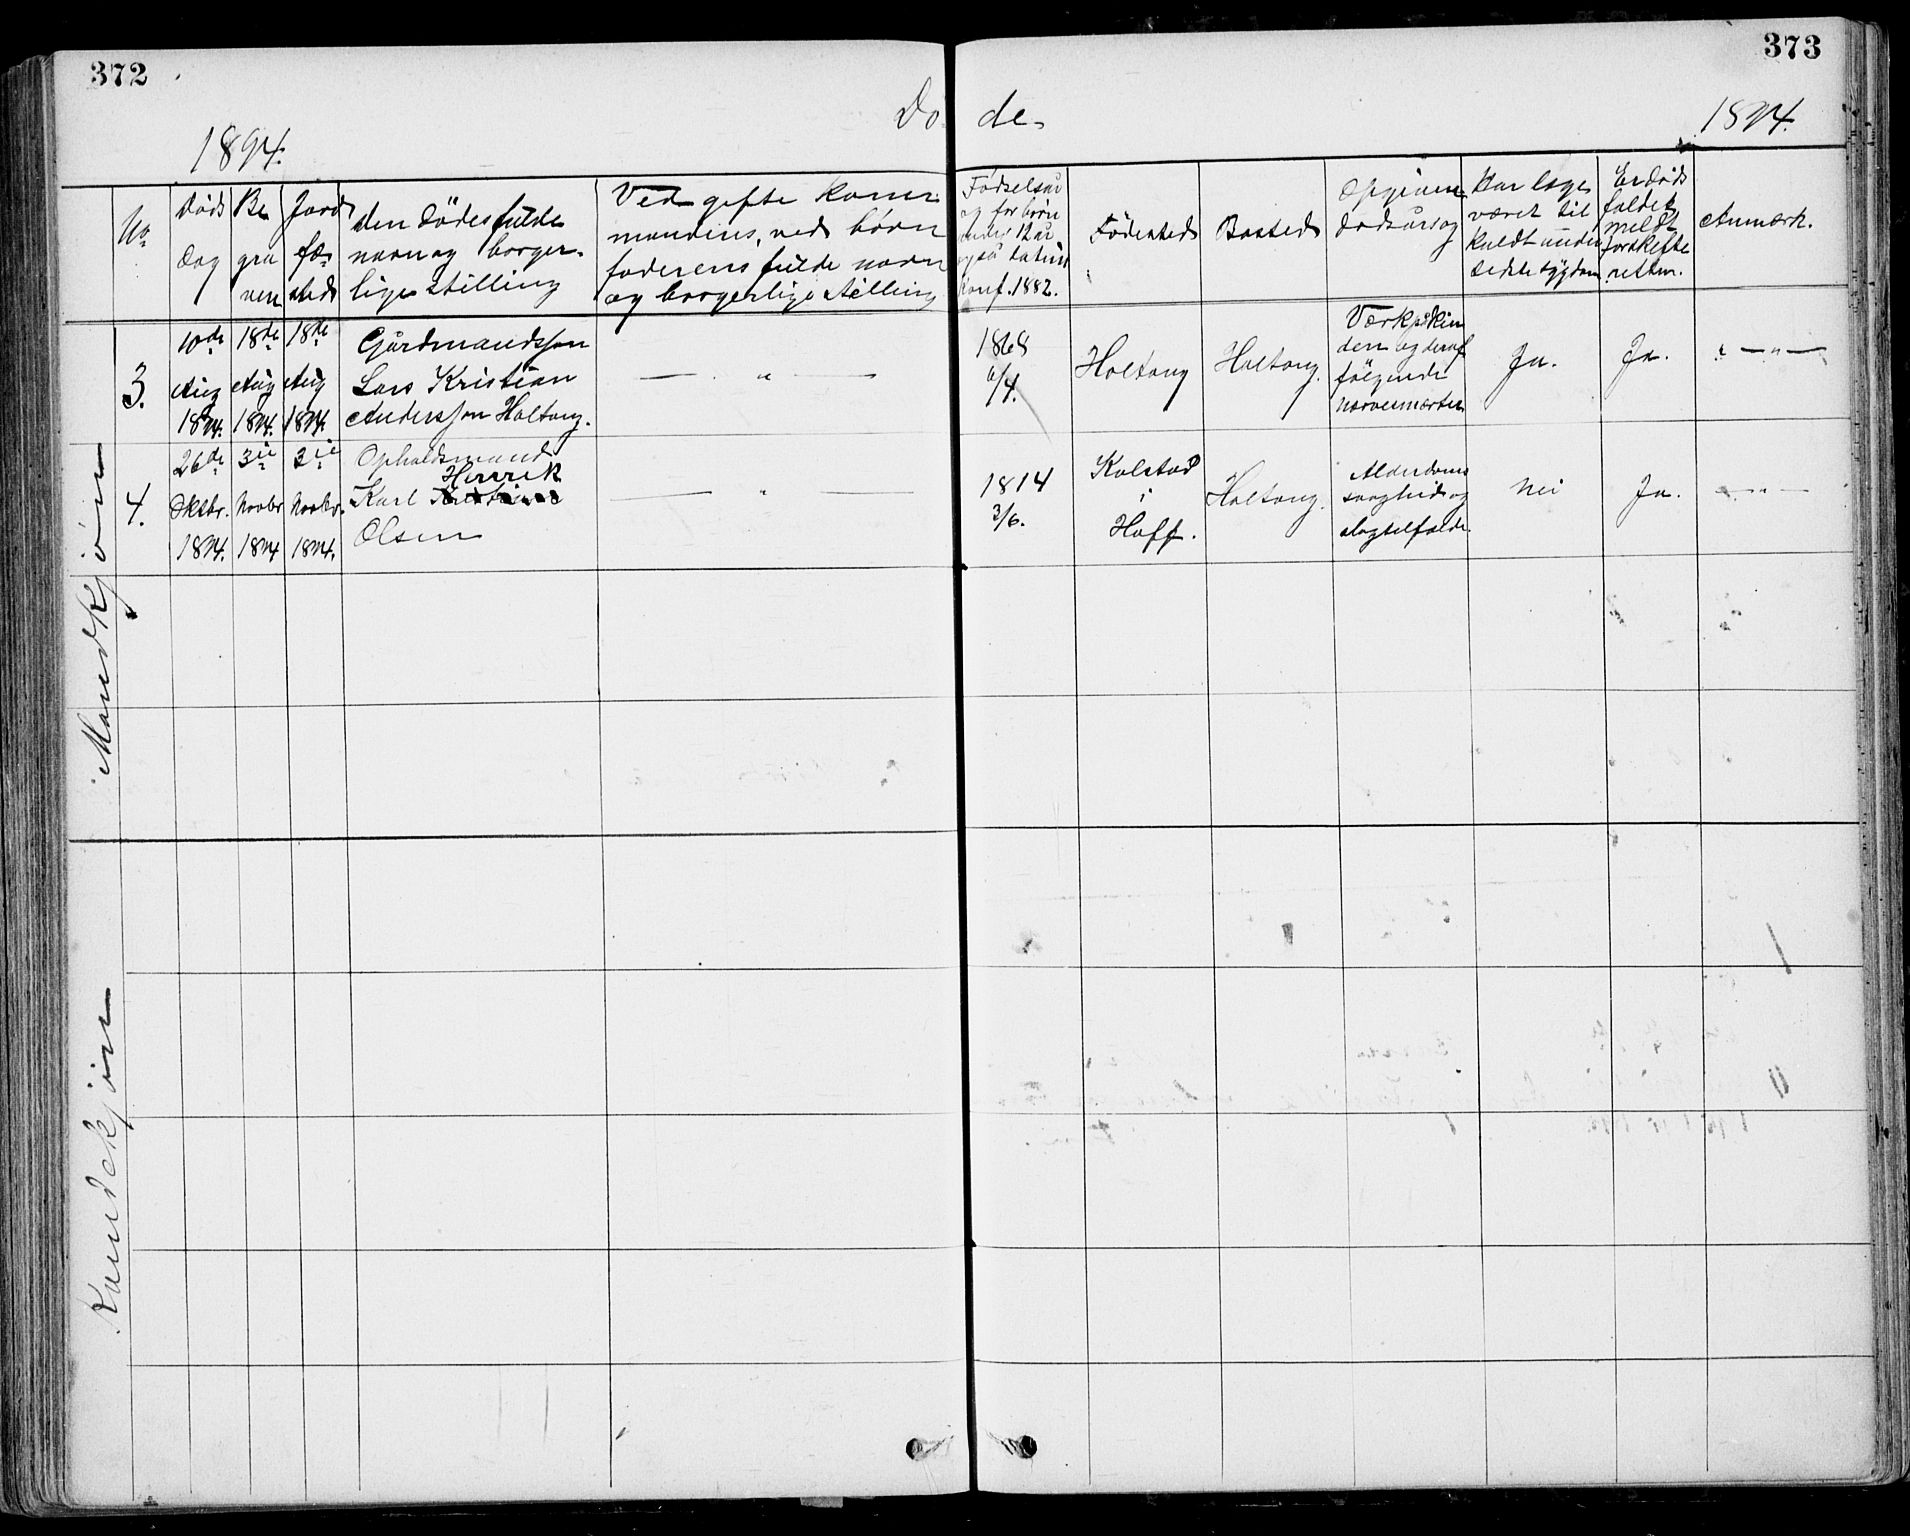 372
373
Dø de
1894.
1894.
No
Døds
dag
Be
gra
ven
Jord
fæ-
sted
den dødes fulde
navn og borger-
lige stilling
Ved gifte koner
mandens, ved børn
faderens fulde navn
og borgerlige stilling
Fødselsår
og for børn
under 12 år
også datum
konf. 1882.
Fødested
Bosted
Opgiven
dødsårsag
Har læge
været til
kaldt under
sidste sygdom
Er døds
faldet
meldt
for skifte
retten.
Anmærk.
Mandkjøn
3.
10de
Aug
1894.
18de
Aug
1894.
18de
Aug
1894.
Gårdmandssøn
Lars Kristian
Anderssøn Holtung.
— " —
1868
6/4.
Holtung
Holtung.
Værk i skin
den og deraf
følgende
Ja.
Ja.
— " —
4.
26de
Oktbr.
1894.
3ie
Novbr
1894
3ie
Novbr.
1894.
Opholdsmand
Henrik
Karl
Olsen
— " —
1814
3/6.
Kolstad
i
Hoff.
Holtung.
Alderdoms
svaghed og
slagtilfælde.
Nei
Ja.
— " —
Kvindekjøn